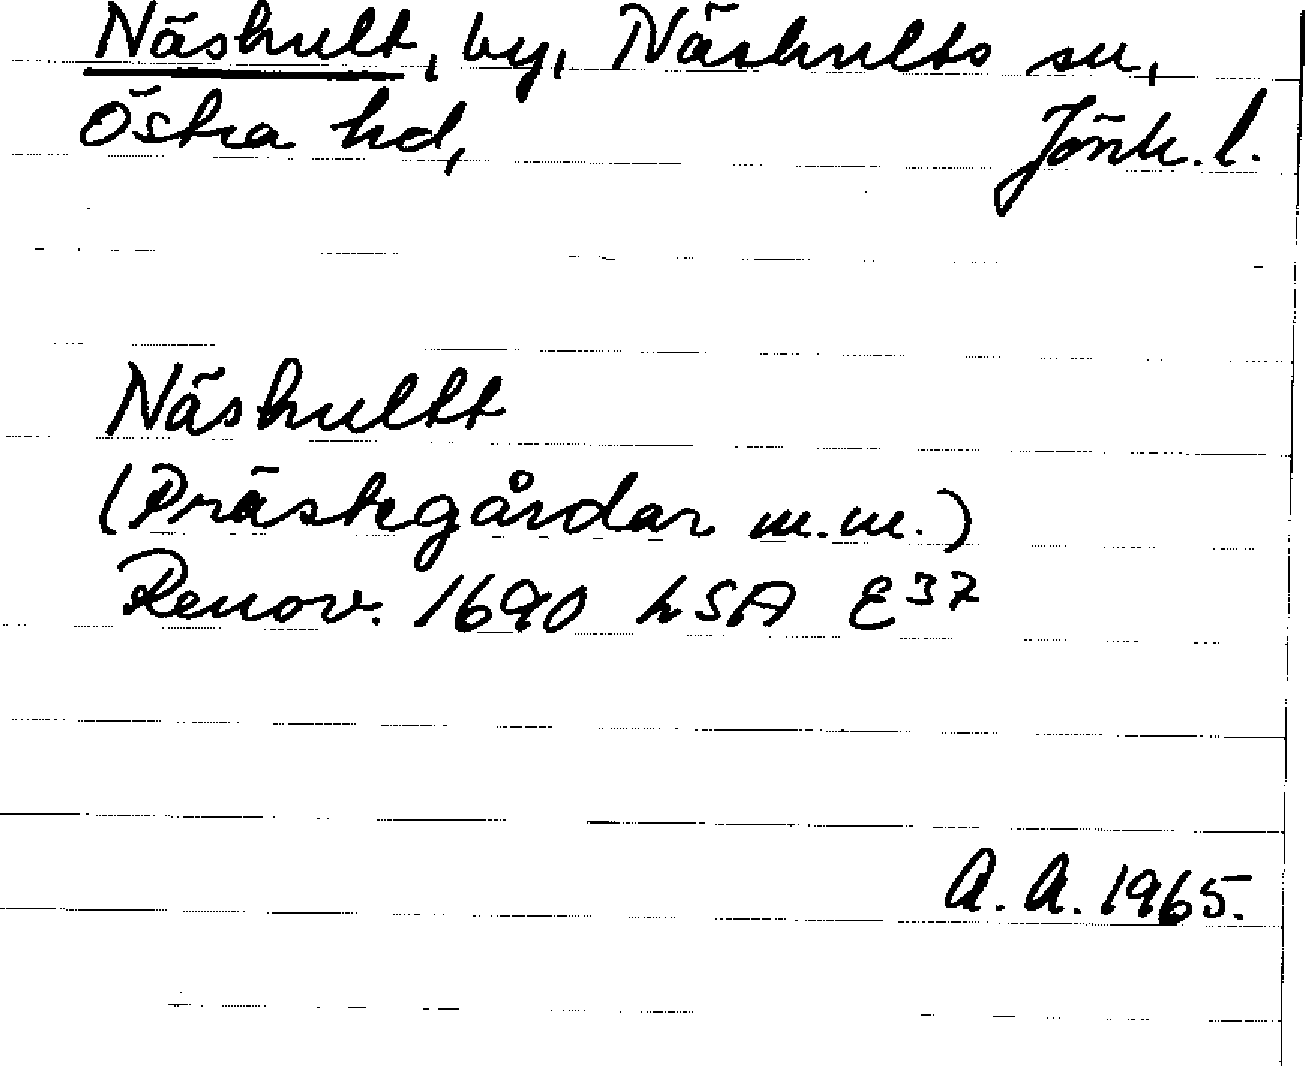 Näshult, by, Näshults sn,
Östra hd, Jönk. l.
Näshultt
(Prästegårdar m.m.)
Renov. 1690 LSA E37
A.A. 1965.